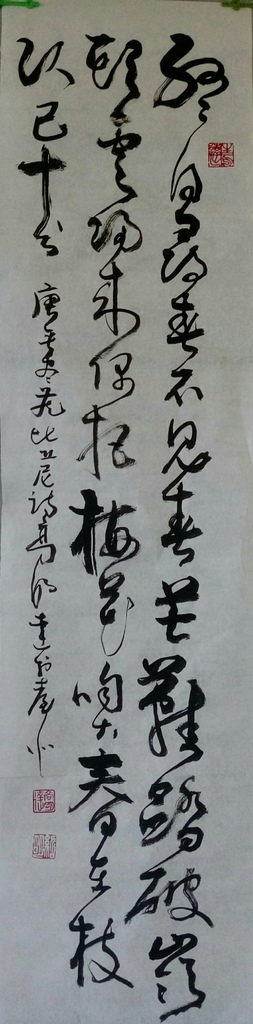 終日尋春不见春芒鞋踏破嶺
頭雲归来偶把梅花嗅春在枝
头已十分
唐无尽藏比丘尼诗